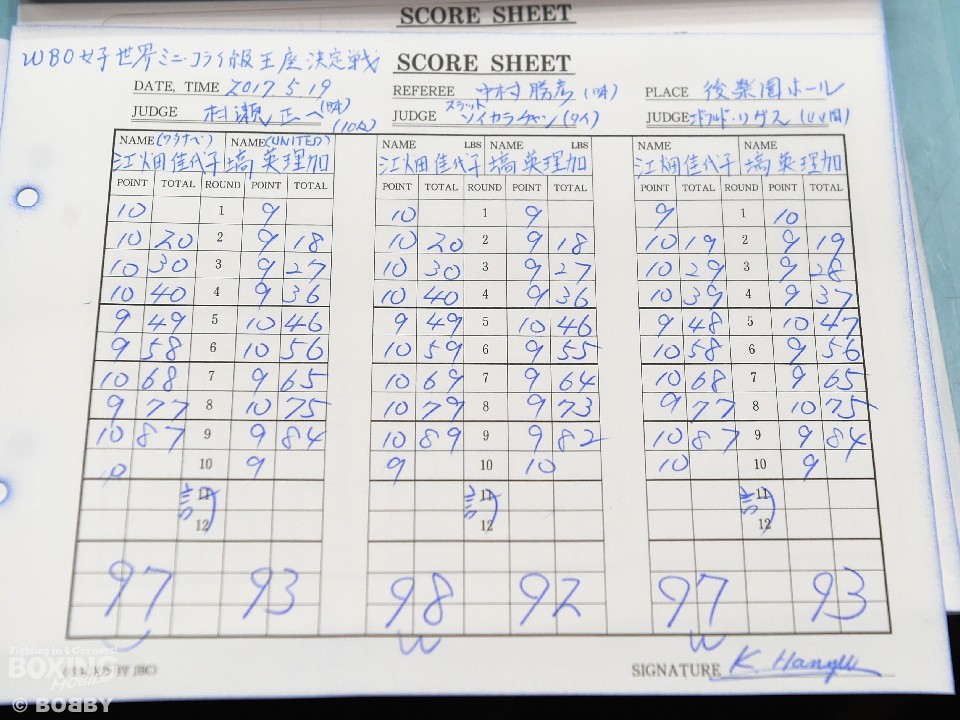 SCORE SHEET
WBO女子世界ミニ・フライ級王座決定戦 SCORE SHEET
DATE, TIME 2017. 5. 19 REFEREE 中村勝彦(日本) PLACE 後楽園ホール
JUDGE 村瀬正一(日本) (10R) JUDGE スラット・ソイカラチャン(タイ) JUDGE
NAME(ワタナベ) NAME(UNITED) NAME LBS NAME LBS NAME NAME
江畑佳代子 塙英理加 江畑佳代子 塙英理加 江畑佳代子 塙英理加
POINT TOTAL ROUND POINT TOTAL POINT TOTAL ROUND POINT TOTAL POINT TOTAL ROUND POINT TOTAL
10 1 9 10 1 9 9 1 10
10 20 2 9 18 10 20 2 9 18 10 19 2 9 19
10 30 3 9 27 10 30 3 9 27 10 29 3 9 28
10 40 4 9 36 10 40 4 9 36 10 39 4 9 37
9 49 5 10 46 9 49 5 10 46 9 48 5 10 47
9 58 6 10 56 10 59 6 9 55 10 58 6 9 56
10 68 7 9 65 10 69 7 9 64 10 68 7 9 65
9 77 8 10 75 10 79 8 9 73 9 77 8 10 75
10 87 9 9 84 10 89 9 9 82 10 87 9 9 84
10 10 9 9 10 10 10 10 9
計 11 計 11 計 11
12 12 12
97 93 98 92 97 93
W W
SIGNATURE
Fighting in 4 Corners!
BOXING
MOBILE
© BOBBY